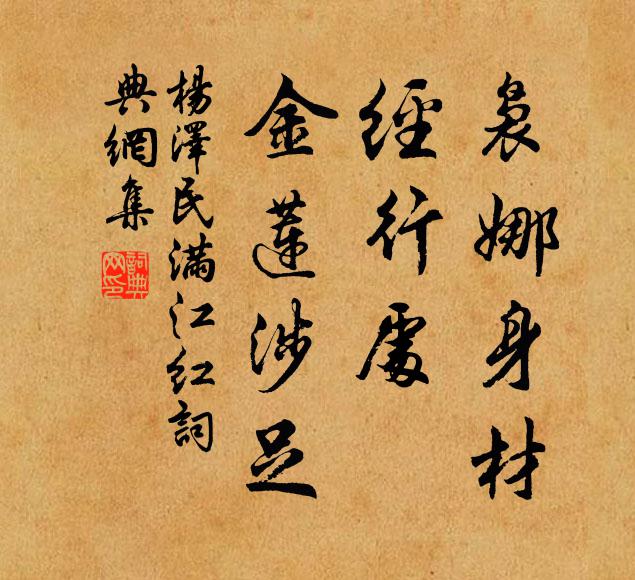 袅娜身材
經行處
金蓮涉足
楊澤民滿江紅詞
典網集
詞典網印